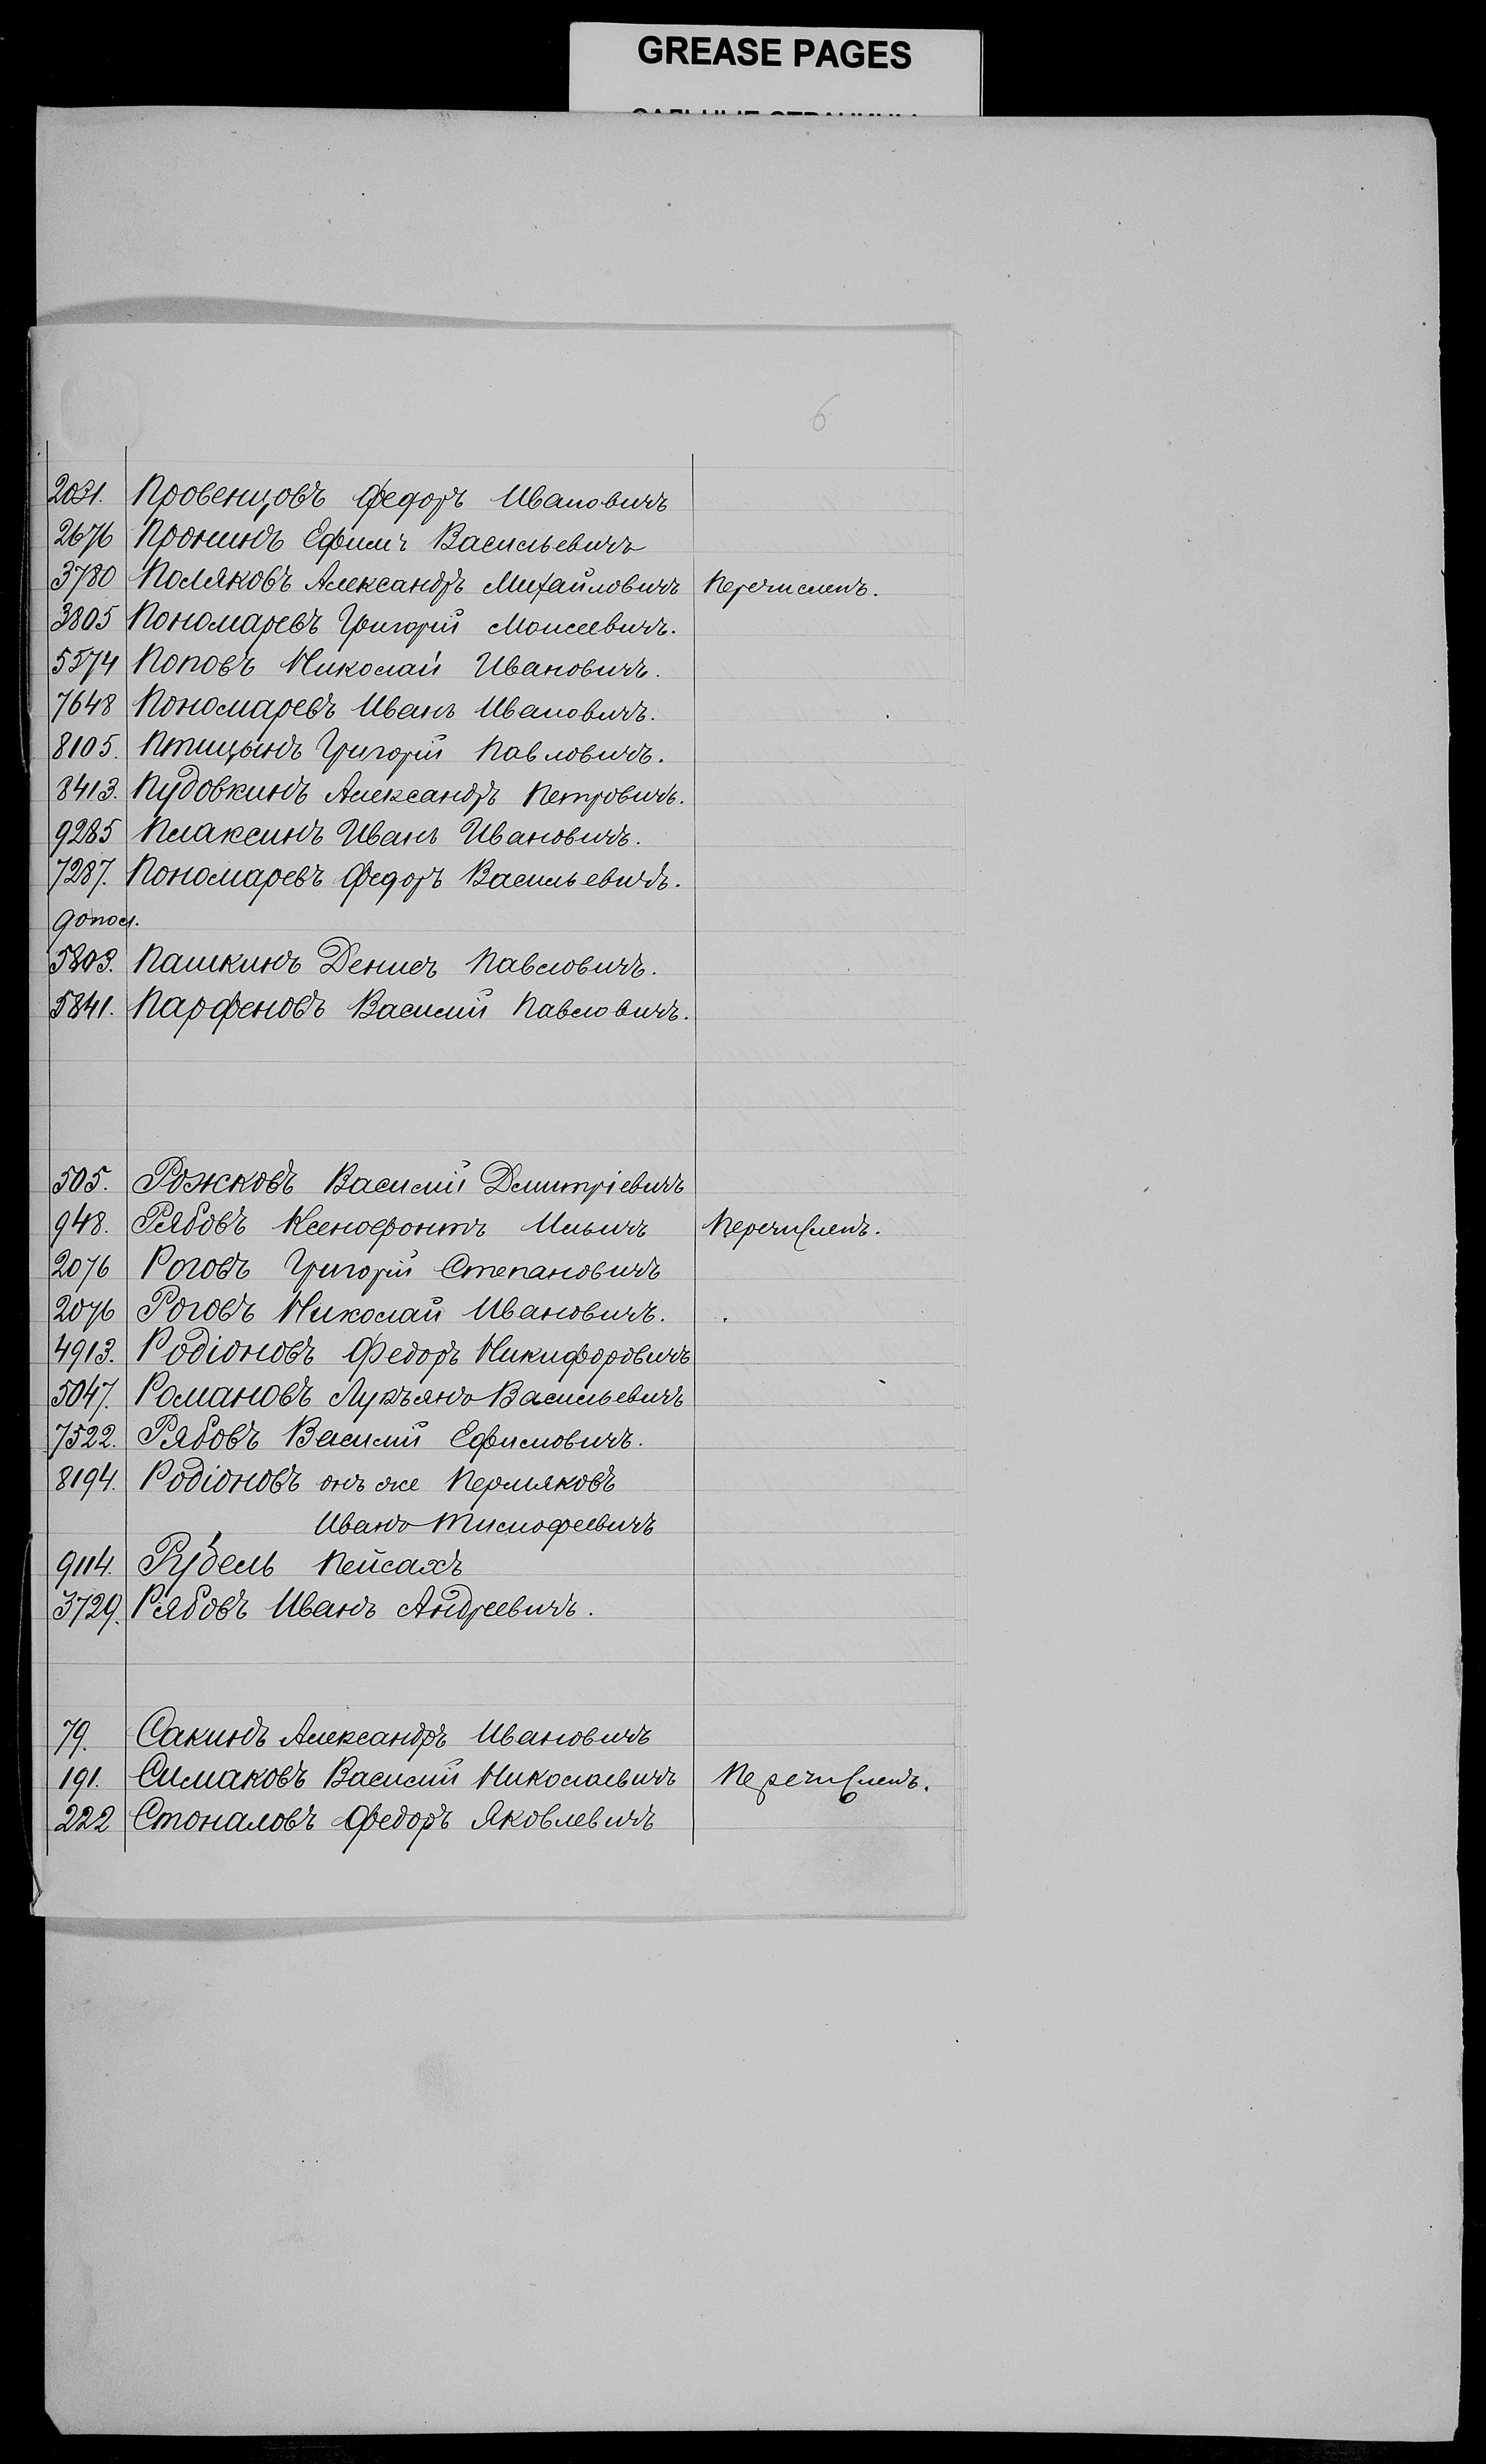 GREASE PAGES
6
2031. Провенцовъ Федоръ Ивановичъ
2676 Пронинъ Ефимъ Васильевичъ
3780 Поляковъ Александръ Михайловичъ Перечисленъ.
3805 Пономаревъ Григорій Моисеевичъ.
5574 Поповъ Николай Ивановичъ.
7648 Пономаревъ Иванъ Ивановичъ.
8105. Птицынъ Григорій Павловичъ.
8413. Пудовкинъ Александръ Петровичъ.
9285 Плаксинъ Иванъ Ивановичъ.
7287. Пономаревъ Федоръ Васильевичъ.
допол.
5803. Пашкинъ Денисъ Павловичъ.
5841. Парфеновъ Василій Павловичъ.
505. Рожковъ Василій Дмитріевичъ
948. Рябовъ Ксенофонтъ Ильичъ Перечисленъ.
2076 Роговъ Григорій Степановичъ
2076 Роговъ Николай Ивановичъ.
4913. Родіоновъ Федоръ Никифоровичъ
5047. Романовъ Лукъянъ Васильевичъ
7522. Рябовъ Василій Ефимовичъ.
8194. Родіоновъ онъ же Пермяковъ
Иванъ Тимофеевичъ
9114. Рубель Пейсахъ
3729. Рябовъ Иванъ Андреевичъ.
79. Сакинъ Александръ Ивановичъ
191. Симаковъ Василій Николаевичъ Перечисленъ.
222 Стоналовъ Федоръ Яковлевичъ